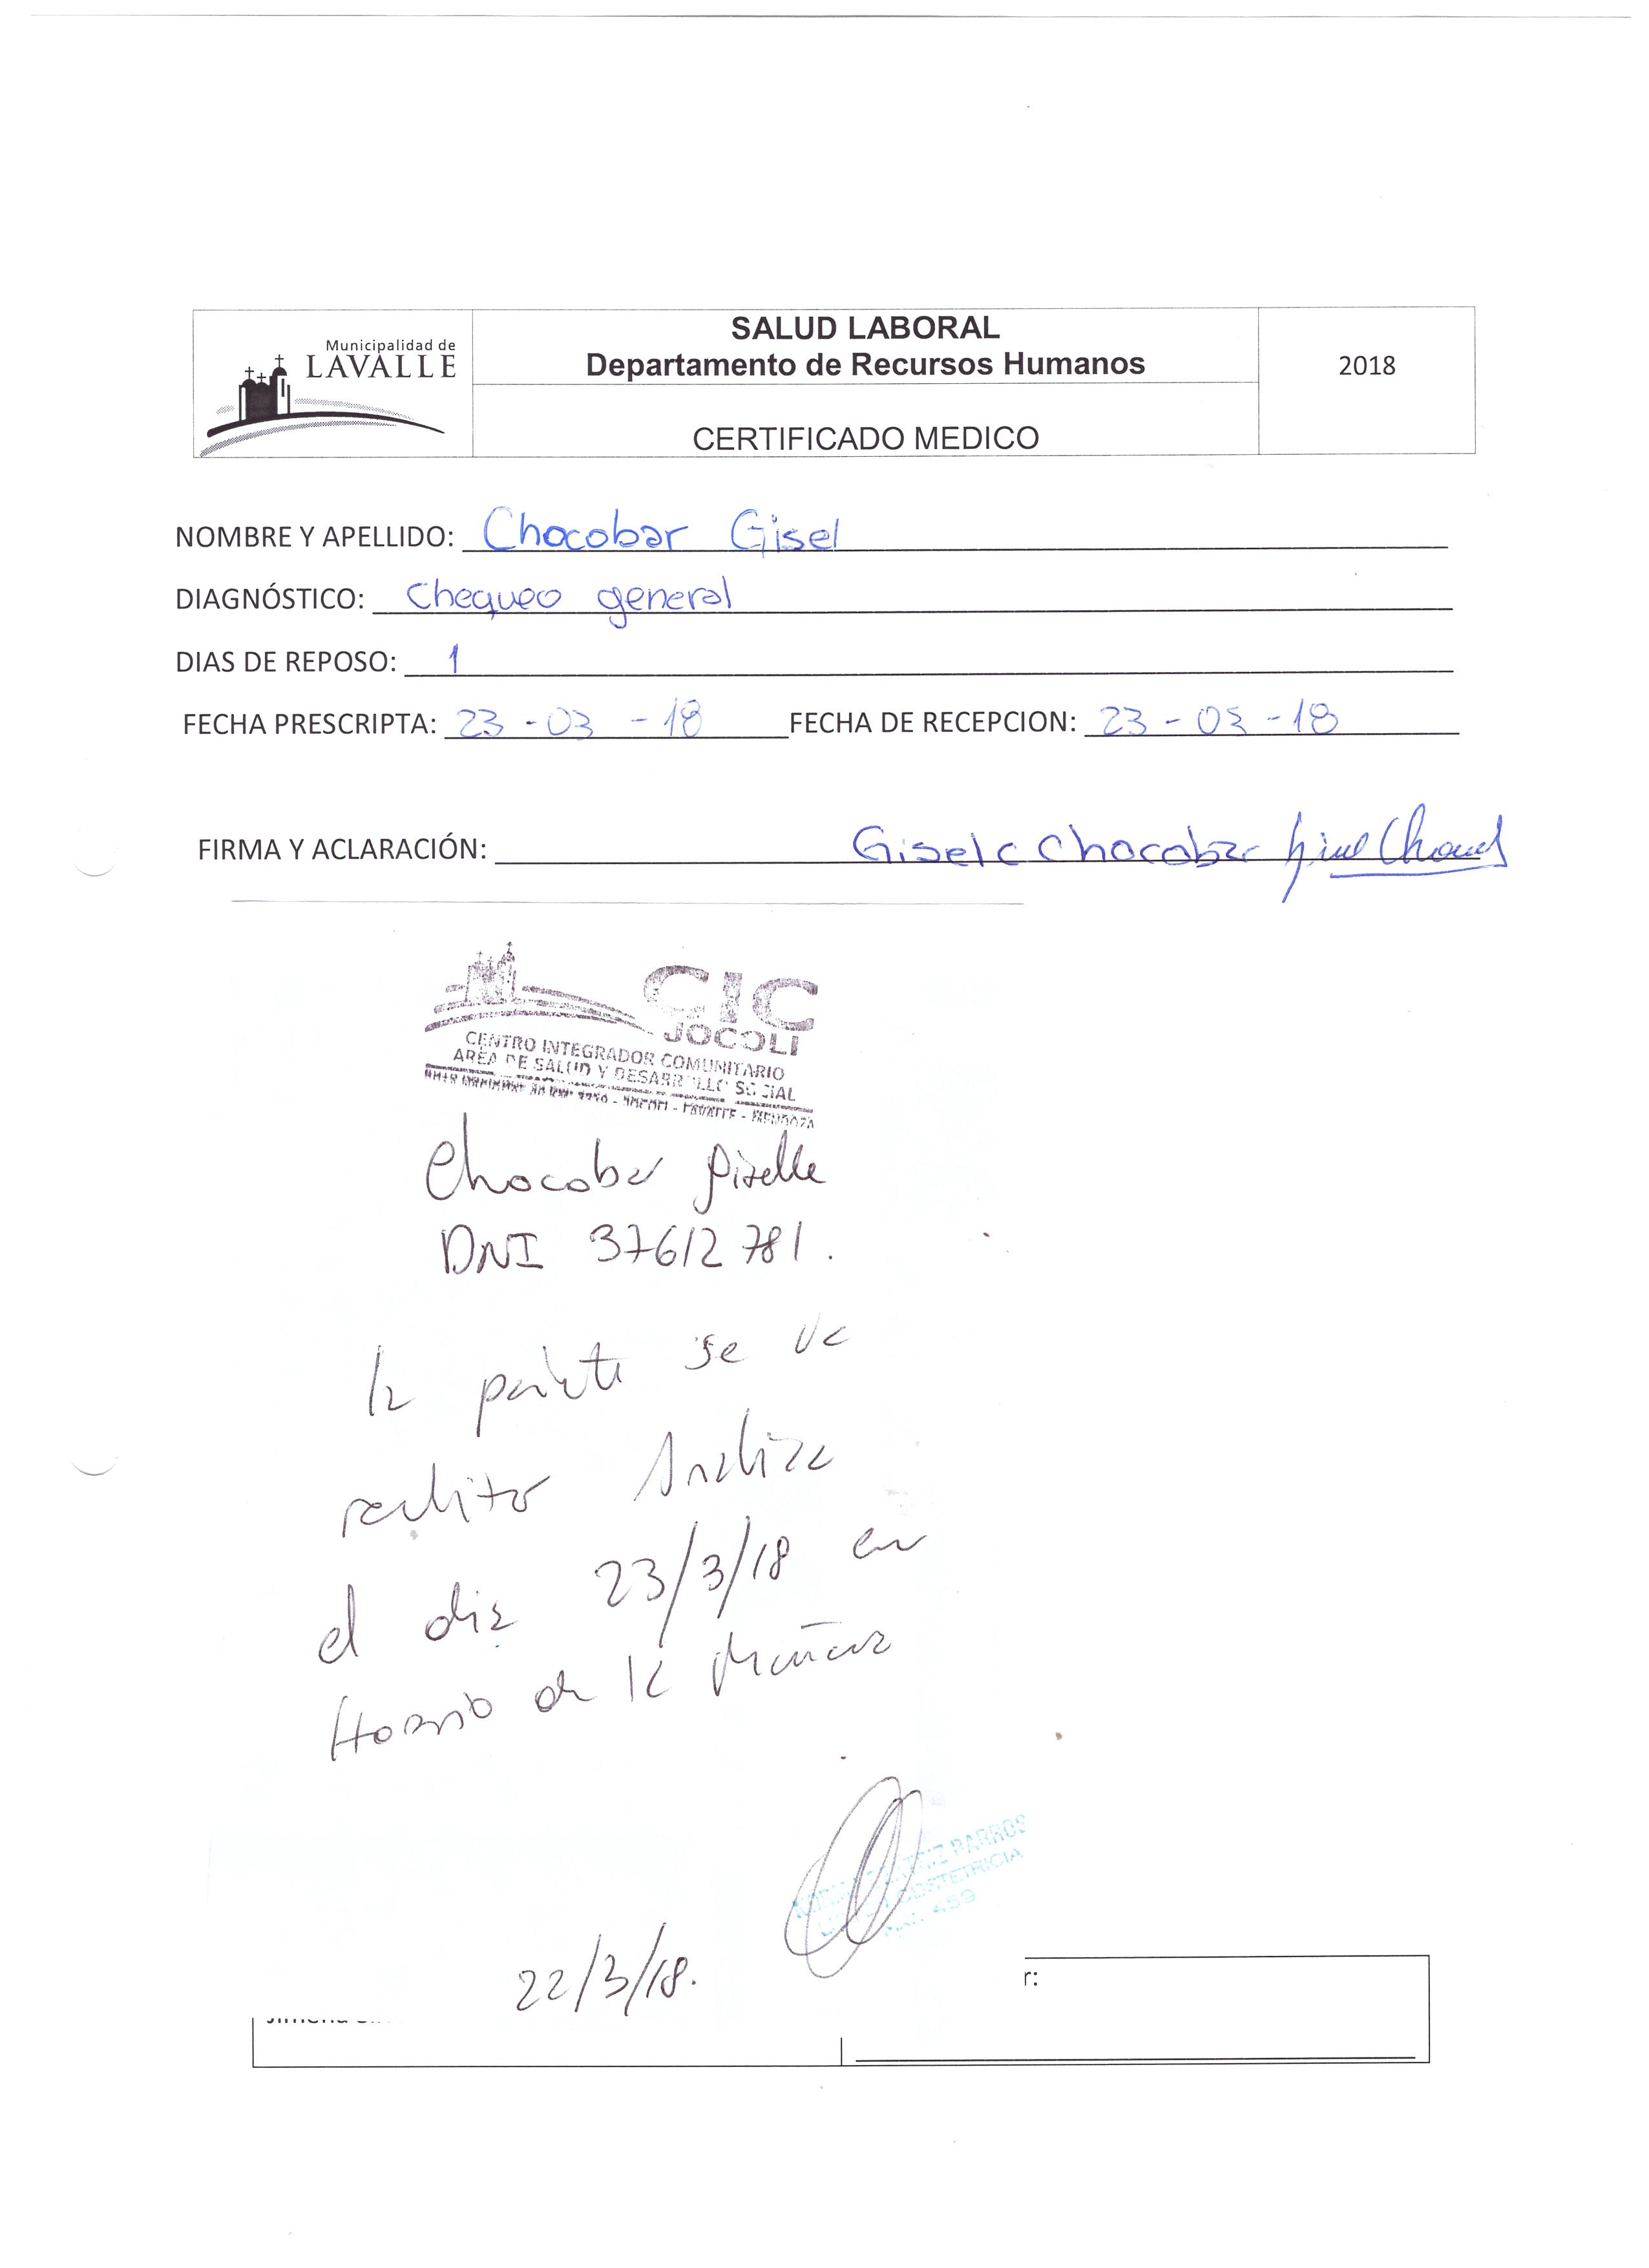 Municipalidad de
LAVALLE
SALUD LABORAL
Departamento de Recursos Humanos
CERTIFICADO MEDICO
2018
NOMBRE Y APELLIDO: Chocobar Gisel
DIAGNÓSTICO: Chequeo general
DIAS DE REPOSO: 1
FECHA PRESCRIPTA: 23-03-18 FECHA DE RECEPCION: 23-03-18
FIRMA Y ACLARACIÓN: Gisele Chocobar
CIC
JOCOLI
CENTRO INTEGRADOR COMUNITARIO
AREA DE SALUD Y DESARROLLO SOCIAL
MENDOZA
Chocobar Giselle
DNI 37612781.
la se va
realizar
el dia 23/3/18 en
Horario de la Mañana
BARROS
OBSTETRICIA
459
22/3/18.
r: